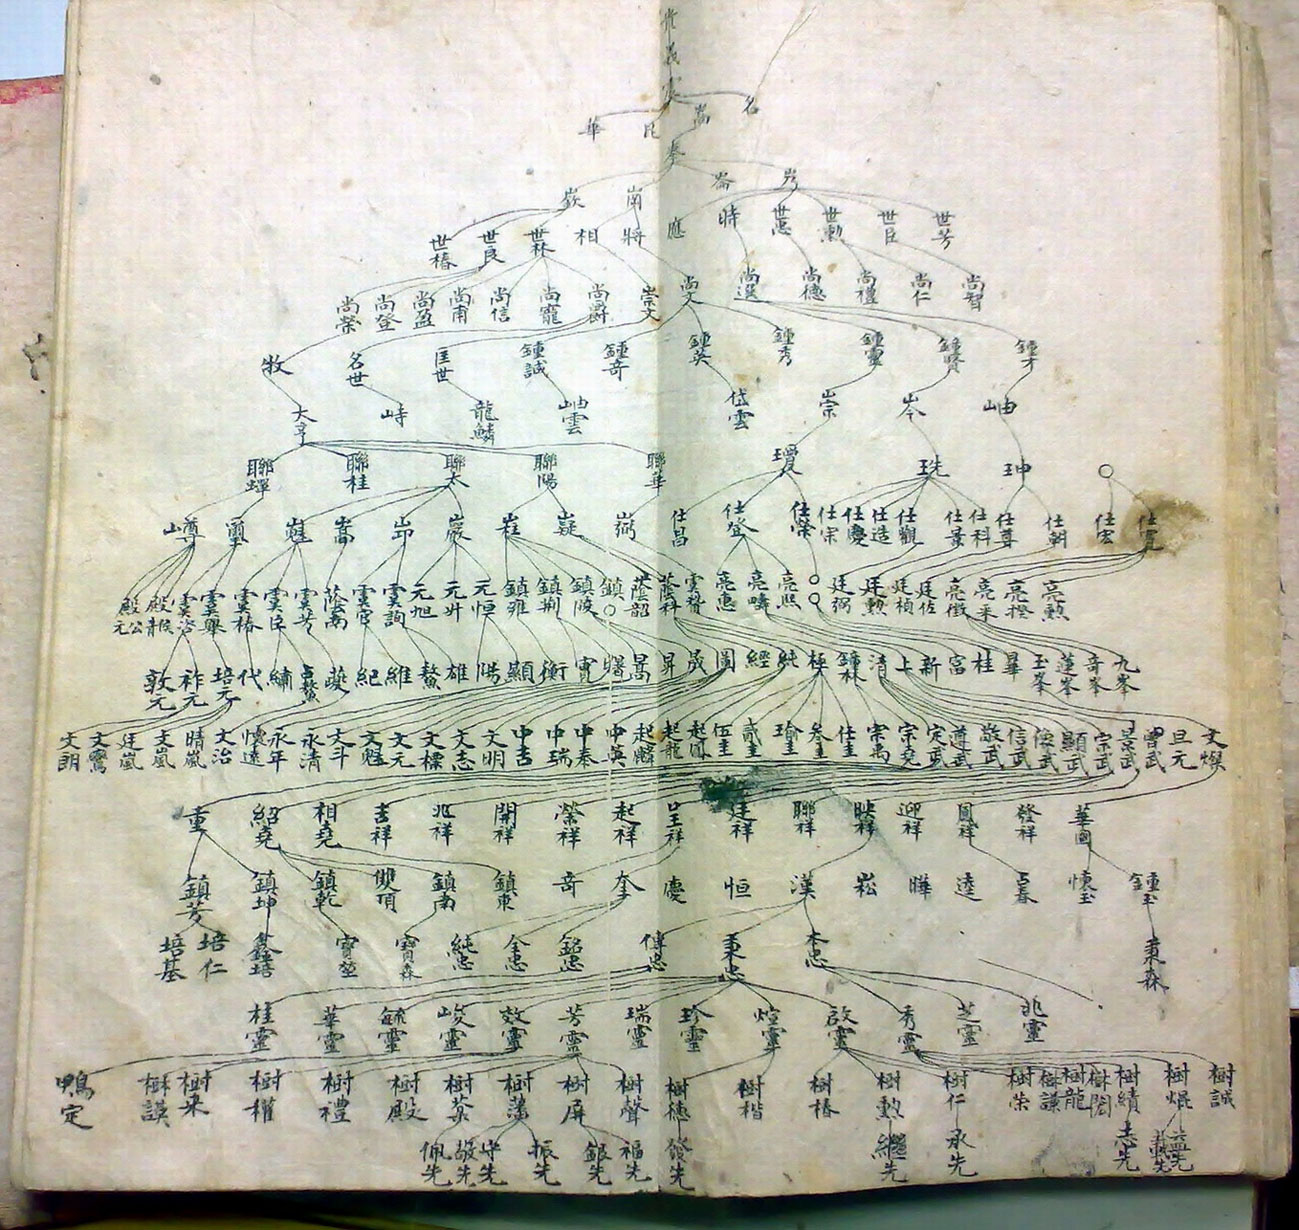 華 嵩 名
欽 崗 崙
世椿 世良 世林 相 將 應 時 世惠 世勳 世臣 世芳
尚榮 尚登 尚盈 尚甫 尚信 尚寵 尚爵 崇文 尚文 尚選 尚德 尚禮 尚仁 尚智
牧 名世 匡世 鍾誠 鍾奇 鍾英 鍾秀 鍾靈 鍾賢 鍾才
大亨 峙 龍鱗 岫雲 岱雲 崇 岑 岫
聯蟬 聯桂 聯太 聯陽 聯華 珗 珅 ○
嵩 巖 嶷 仕昌 仕登 仕榮 仕宗 仕慶 仕造 仕觀 仕景 仕科 仕尊 仕朝 仕宏 仕寬
殿元公 雲椿 雲臣 雲芳 雲官 雲詢 元旭 元升 元恒 鎮雍 鎮荊 鎮○ 蔭韶 蔭科 亮惠 亮疇 亮熙 ○○ 廷弼 廷勲 廷楨 廷佐 亮徵 亮采 亮揆 亮勲
敦元 祚元 培元 代 繡 紀 維 鰲 雄 陽 顯 衡 實 曙 昺 昇 晟 圖 經 純 極 鍾秣 清 上 新 富 桂 畢 玉峯 蓮峯 奇峯 九峯
文朗 文鸞 廷嵐 文嵐 晴嵐 文治 懷遠 永年 永清 文斗 文魁 文元 文標 文志 文明 中吉 中瑞 中泰 中英 起麟 起龍 起鳳 伍圭 貳圭 瑜圭 叁圭 仕圭 宗禹 宗堯 定武 遵武 敬武 信武 俊武 顯武 宗武 景武 曾武 旦元 文燦
重 紹堯 相堯 吉祥 兆祥 開祥 榮祥 起祥 呈祥 廷祥 聯祥 映祥 迎祥 鳳祥 發祥 華國
鎮芳 鎮坤 鎮乾 雙頂 鎮南 鎮東 奇 奎 慶 恒 漢 崧 曄 逵 春 懷玉 鍾玉
培基 培仁 鑫培 寶森 純忠 全忠 銘忠 傳忠 秉忠 本忠 秉森
桂靈 華靈 毓靈 峻靈 效靈 芳靈 瑞靈 珍靈 煊靈 啟靈 秀靈 芝靈 兆靈
鴨定 樹謨 樹果 樹權 樹禮 樹殿 樹棻 樹藩 樹屏 樹聲 樹德 樹楷 樹椿 樹勲 樹仁 樹荣 樹謙 樹龍 樹閎 樹績 樹焜 樹誠
佩先 敬先 守先 振先 銀先 福先 發先 繼先 承先 志先